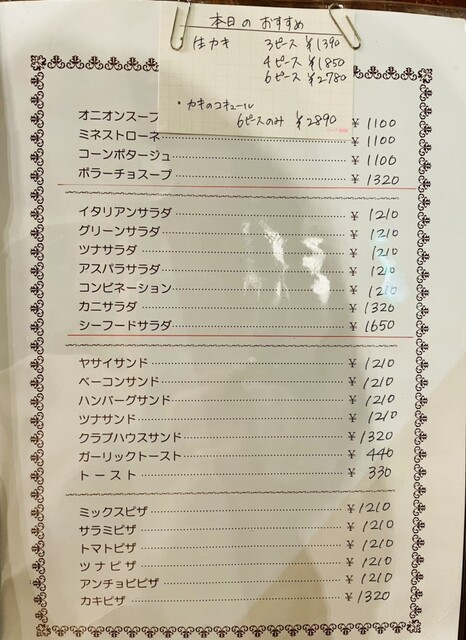 本日のおすすめ
生カキ 3ピース ¥1390
4ピース ¥1850
6ピース ¥2780
・カキのコキュール
6ピースのみ ¥2890
オニオンスープ ¥1100
ミネストローネ ¥1100
コーンポタージュ ¥1100
ポラーチョスープ ¥1320
イタリアンサラダ ¥1210
グリーンサラダ ¥1210
ツナサラダ ¥1210
アスパラサラダ ¥1210
コンビネーション ¥1210
カニサラダ ¥1320
シーフードサラダ ¥1650
ヤサイサンド ¥1210
ベーコンサンド ¥1210
ハンバーグサンド ¥1210
ツナサンド ¥1210
クラブハウスサンド ¥1320
ガーリックトースト ¥440
トースト ¥330
ミックスピザ ¥1210
サラミピザ ¥1210
トマトピザ ¥1210
ツナピザ ¥1210
アンチョビピザ ¥1210
カキピザ ¥1320